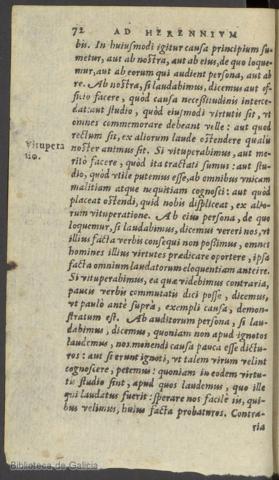 72 AD HERENNIVM
bis. In huiusmodi igitur causa principium su-
metur, aut ab nostra, aut ab eius, de quo loque-
mur, aut ab eorum qui audient persona, aut ab
re. Ab nostra, si laudabimus, dicemus aut of-
ficio facere, quòd causa necessitudinis interce-
dat: aut studio, quòd eiusmodi virtutis sit, vt
omnes commemorare debeant velle: aut quod
rectum sit, ex aliorum laude ostendere qualis
noster animus sit. Si vituperabimus, aut me-
Vitupera
tio.
ritò facere, quòd ita tractati sumus: aut stu-
dio, quòd vtile putemus esse, ab omnibus vnicam
malitiam atque nequitiam cognosci: aut quod
placeat ostendi, quid nobis displiceat, ex alio-
rum vituperatione. Ab eius persona, de quo
loquemur, si laudabimus, dicemus vereri nos, vt
illius facta verbis consequi non possimus, omnes
homines illius virtutes predicare oportere, ipsa
facta omnium laudatorum eloquentiam anteire.
Si vituperabimus, ea quæ videbimus contraria,
paucis verbis commutatis dici posse, dicemus,
vt paulò antè suprà, exempli causa, demon-
stratum est. Ab auditorum persona, si lau-
dabimus, dicemus, quoniam non apud ignotos
laudemus, nos monendi causa pauca esse dictu-
ros: aut si erunt ignoti, vt talem virum velint
cognoscere, petemus: quoniam in eodem virtu-
tis studio sint, apud quos laudemus, quo ille
qui laudatus fuerit: sperare nos facilè iis, qui-
bus velimus, huius facta probaturos. Contra-
ria
Biblioteca de Galicia